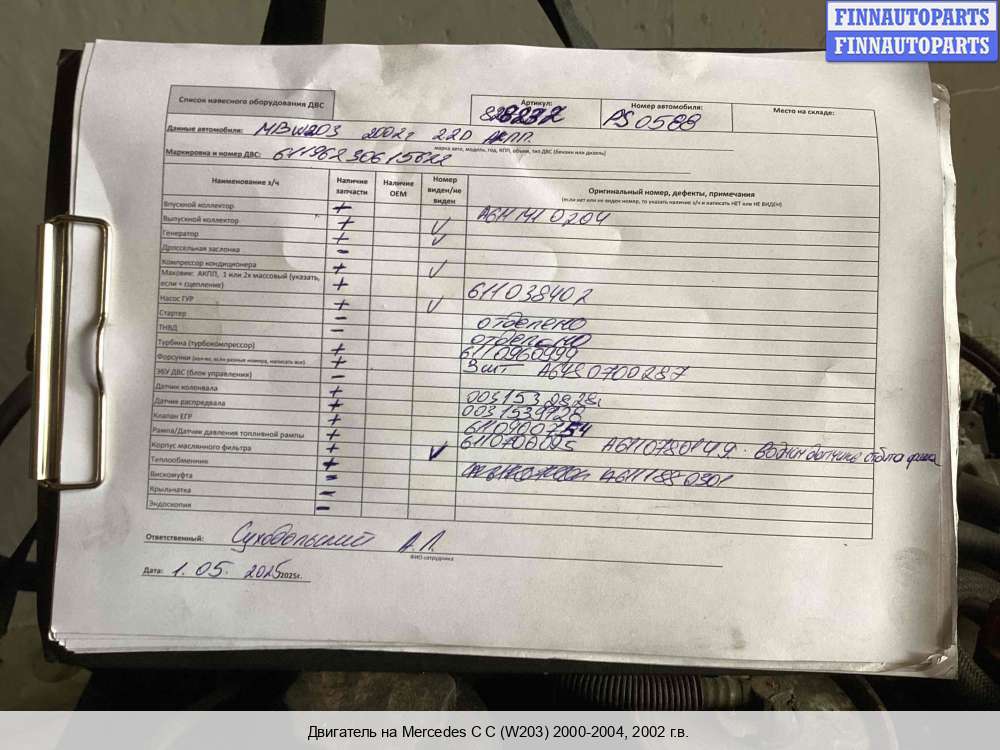 FINNAUTOPARTS
FINNAUTOPARTS
Список навесного оборудования ДВС
Артикул:
Номер автомобиля: PS0588
Место на складе:
Данные автомобиля: MBW203 2002г 2.2D АКПП.
марка авто, модель, год, КПП, объем, тип ДВС (бензин или дизель)
Маркировка и номер ДВС:
Наименование з/ч Наличие запчасти Наличие OEM Номер виден/не виден Оригинальный номер, дефекты, примечания
(если нет или не виден номер, то указать наличие з/ч и написать НЕТ или НЕ ВИДЕН)
Впускной коллектор + A611 141 0204
Выпускной коллектор + V
Генератор + V
Дроссельная заслонка -
Компрессор кондиционера + V
Маховик: АКПП, 1 или 2х массовый (указать, если + сцепление) + 611038402
Насос ГУР + V
Стартер - отделено
ТНВД - отделено
Турбина (турбокомпрессор) + 6110960999
Форсунки (кол-во, если разные номера, написать все) + 3шт A6480700287
ЭБУ ДВС (блок управления) -
Датчик коленвала + 0031532828
Датчик распредвала + 0031539728
Клапан ЕГР +
Рампа/Датчик давления топливной рампы + A6110780149
Корпус маслянного фильтра + V
Теплообменник + A6111880301
Вискомуфта -
Крыльчатка -
Эндоскопия -
Ответственный: Суходольский А.Л.
ФИО сотрудника
Дата: 1.05. 2025 2025г.
Двигатель на Mercedes C C (W203) 2000-2004, 2002 г.в.